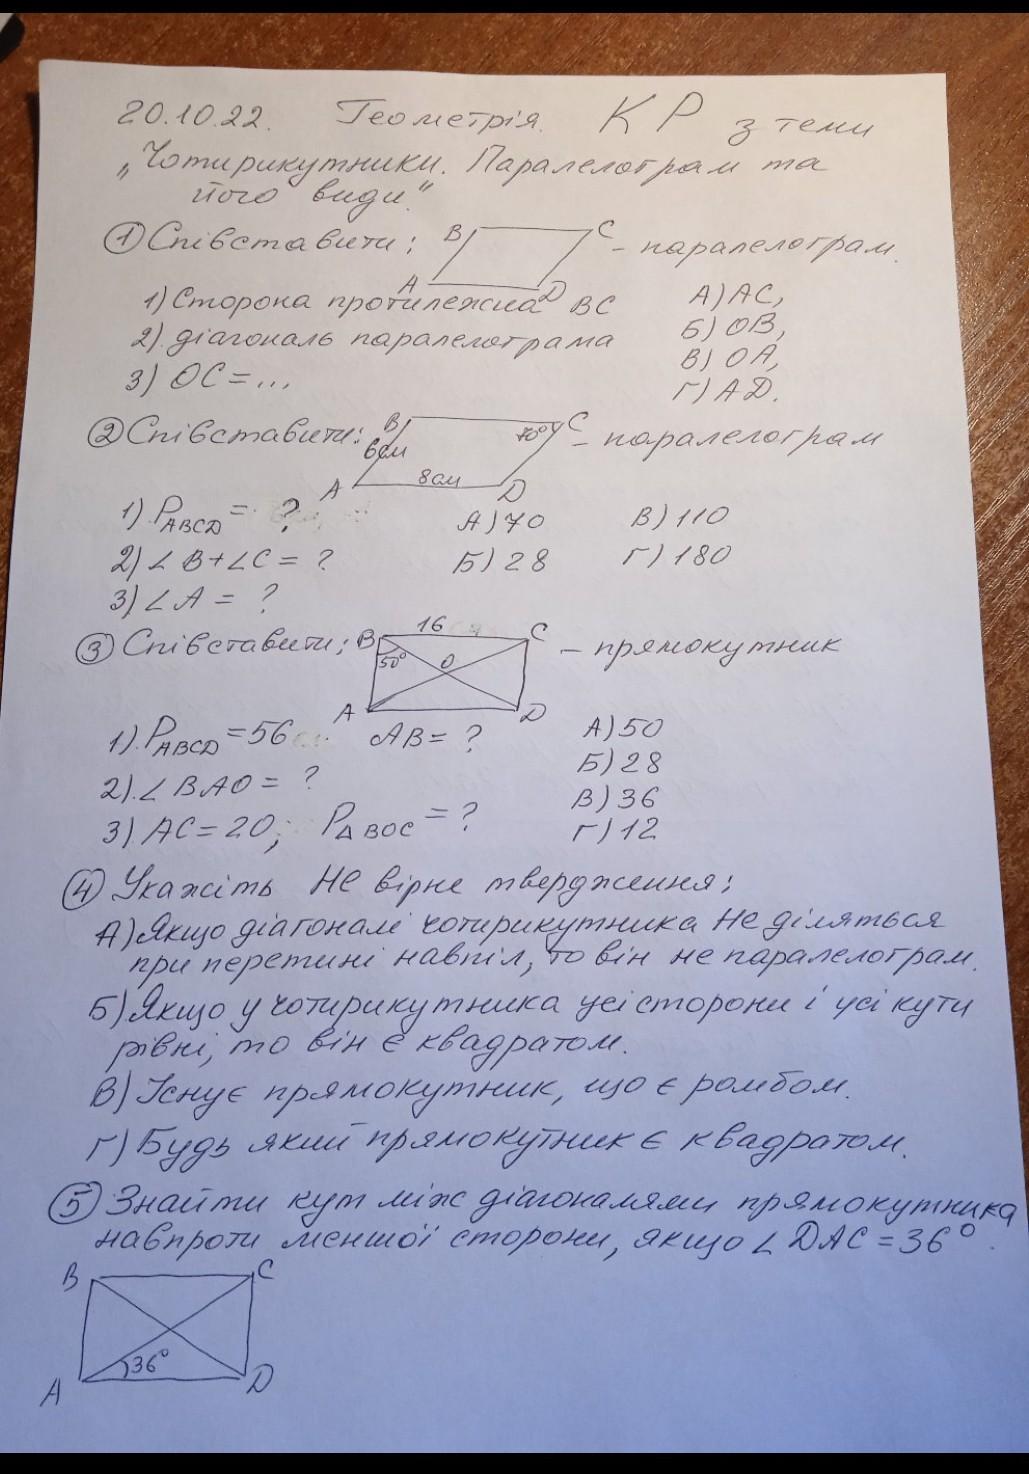 20.10.22. Геометрія. КР з теми
„Чотирикутники. Паралелограм та
його види."
① Співставити: B C A D - паралелограм.
1) Сторона протилежна BC А) AC,
2) діагональ паралелограма Б) OB,
3) OC = ... В) OA,
Г) AD.
② Співставити: B C 70° 6см A 8см D - паралелограм
1) P_ABCD = ? А) 70 В) 110
2) ∠B+∠C = ? Б) 28 Г) 180
3) ∠A = ?
③ Співставити: B 16 C 50° O A D - прямокутник
1) P_ABCD = 56 AB = ? А) 50
2) ∠BAO = ? Б) 28
В) 36
3) AC = 20; P_ΔBOC = ? Г) 12
④ Укажіть Не вірне твердження:
А) Якщо діагоналі чотирикутника не діляться
при перетині навпіл, то він не паралелограм.
Б) Якщо у чотирикутника усі сторони і усі кути
рівні, то він є квадратом.
В) Існує прямокутник, що є ромбом.
Г) Будь який прямокутник є квадратом.
⑤ Знайти кут між діагоналями прямокутника
навпроти меншої сторони, якщо ∠DAC = 36°.
B C
36°
A D